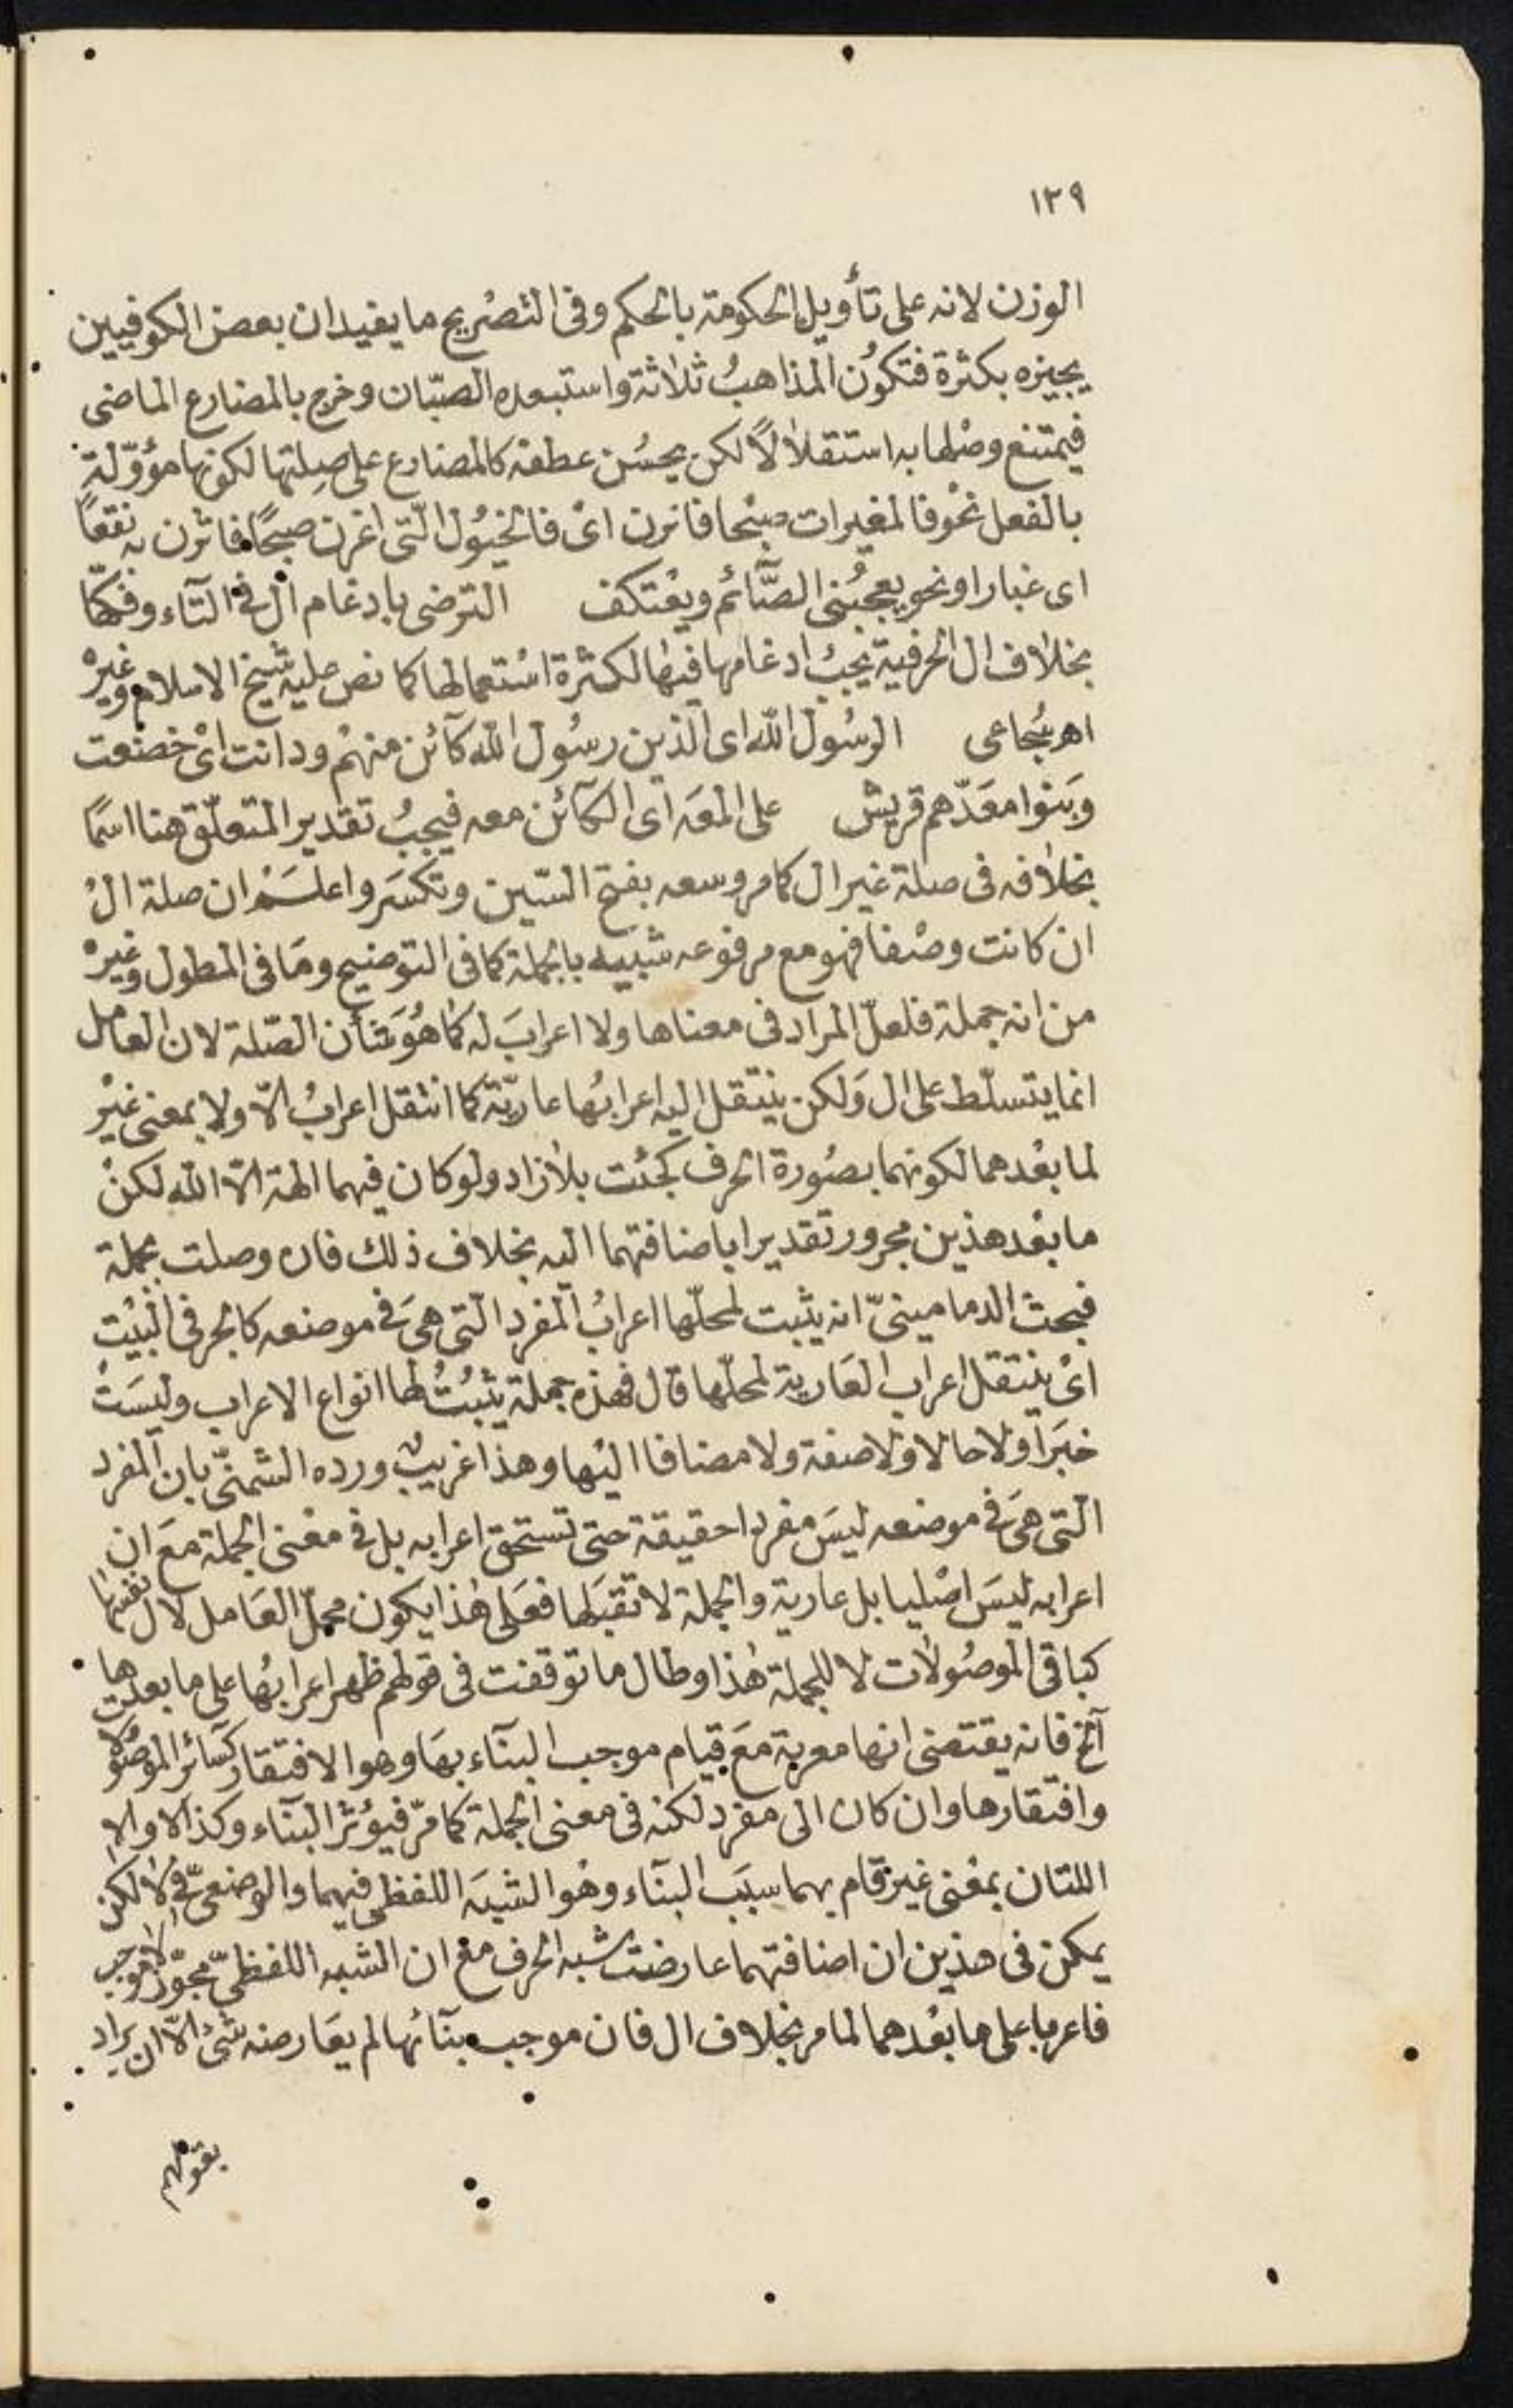 ١٢٩
الوزن لانه على تأويل الحكومة بالحكم وفى التصريح ما يفيد ان بعض الكوفيين
يجيزه بكثرة فتكون المذاهبُ ثلاثة واستبعده الصبّان وخرج بالمضارع الماضى
فيمتنع وصْلها به استقلالاً لكن يحسُن عطفه كالمضارع على صِلتها لكونها مؤوّلة
بالفعل نحْو فالمغيرات صبْحا فاثرن اىْ فالخيُول الّتى اغرن صبحًا فاثرن به نقعًا
اى غبارا ونحو يعجبُنى الصَّائم ويعْتكف الترضى بادغام ال فى التّاء وفكّها
بخلاف ال الحرفية يجبُ ادغامها فيها لكثرة اسْتعمالها كما نص عليه شيخ الاسلام وغيرْه
اهر سُجاعى الرسُول الله اى الذين رسُول الله كآئن منهمْ ودانت اىْ خضعت
وبَنوا مَعَدّهم قريش على المعَه اى الكآئن معه فيجبُ تقدير المتعلّق هنا اسمًا
بخلافه فى صلة غير ال كما مر وسعه بفتح السّين وتكسَر واعلَمْ ان صلة الْ
ان كانت وصْفا فهو مع مرفوعه شبيه بالجملة كما فى التوضيح ومَا فى المطول وغيرْه
من انه جملة فلعلّ المراد فى معناها ولا اعرابَ له كما هُوَ شأن الصّلة لان العامل
انما يتسلّط على ال وَلكن ينتقل اليه اعرابُها عاريّة كما انتقل اعرابُ الاّ ولا بمعنى غيْر
لما بعْدهما لكونهما بصُورة الحرف كجئت بلا زاد ولو كان فيهما الهة الاّ الله لكنْ
ما بعْد هذين مجرور تقديرا باضافتهما اليه بخلاف ذلك فان وصلت بجملة
فبحث الدمامينىّ انه يثبت لمحلّها اعرابُ المفرد الّتى هىَ فى موضعه كالجر فى البْيت
اىْ ينتقل اعراب العَارية لمحلّها قال فهذه جملة يثبُتُ لها انواع الاعراب وليسَتْ
خبَرا ولا حالا ولا صفة ولا مضافا اليْها وهذا غريبٌ ورده الشمنّى بان المفرد
الّتى هىَ فى موضعه ليسَ مفردا حقيقة حتى تستحق اعرابه بل فى معْنى الجملة معَ ان
اعرابه ليسَ اصْليا بل عارية والجملة لا تقبَلها فعَلى هٰذا يكون محلّ العَامل لال نفسها
كباقى الموصُولات لا للجملة هٰذا وطال ما توقفت فى قولهم ظهر اعرابُها على ما بعدها
آلخ فانه يقتضى انها معربة معَ قيام موجب البنآء بهَا وهو الافتقار كسَائر الموصُولات
وافتقارها وان كان الى مفرد لكنه فى معنى الجملة كما مرّ فيؤثر البنآء وكذا لا والا
اللتان بمعْنى غير قام بهما سبَب البنآء وهُو الشبَه اللفظى فيهما والوضعىّ فى لا لكن
يمكن فى هذين ان اضافتهما عارضت شبه الحرف مع ان الشبه اللفظىّ مجوّز لا موجب
فاعربا على ما بعْدهما لما مر بخلاف ال فان موجب بنآئها لم يعَارضه شىُ الاّ ان يراد
بقولهم